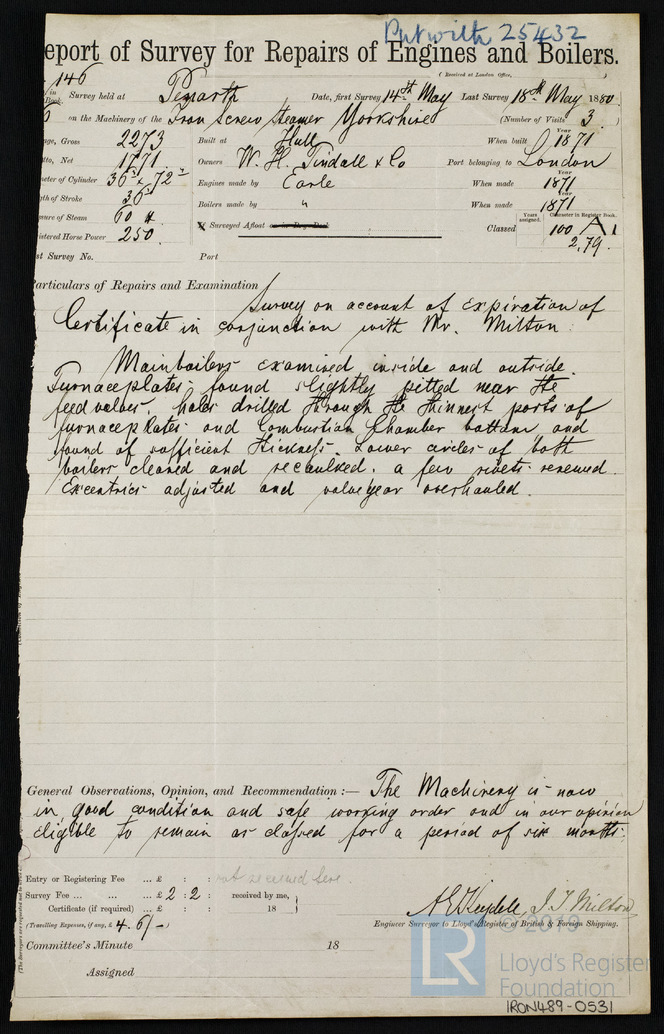 Put with 25432
eport of Survey for Repairs of Engines and Boilers.
(Received at London Office, )
146
in Book. Survey held at Penarth Date, first Survey 14th May Last Survey 18th May 1880.
on the Machinery of the Iron Screw Steamer Yorkshire (Number of Visits 3 )
age, Gross 2273 Built at Hull When built Year 1871
Net 1471 Owners W. H. Tindall & Co Port belonging to London
meter of Cylinder 36" & 72" Engines made by Earle When made Year 1871
gth of Stroke 36" Boilers made by " When made Year 1871
sure of Steam 60 # Surveyed Afloat or in Dry Dock Classed Years assigned. 100 Character in Register Book. A1
istered Horse Power 250 2,79.
st Survey No. Port
articulars of Repairs and Examination Survey on account of expiration of
Certificate in conjunction with Mr. Milton.
Main boilers examined inside and outside.
Furnaceplates found slightly pitted near the
feed valves, holes drilled through the thinnest parts of
furnaceplates and Combustion Chamber bottom and
found of sufficient thickness. Lower circles of both
boilers cleaned and recaulked. a few rivets renewed.
Excentrics adjusted and valvegear overhauled.
General Observations, Opinion, and Recommendation:— The Machinery is now
in good condition and safe working order and in our opinion
eligible to remain as classed for a period of six months.
Entry or Registering Fee ... £ : : not received here.
Survey Fee ... ... ... £ 2 : 2 : received by me,
Certificate (if required) ... £ : : 18
(Travelling Expenses, if any, £ 4. 6/-)
A E Keydell J. T. Milton
Engineer Surveyor to Lloyd's Register of British & Foreign Shipping.
Committee's Minute 18
Assigned
© 2019
LR
Lloyd's Register
Foundation
IRON489-0531